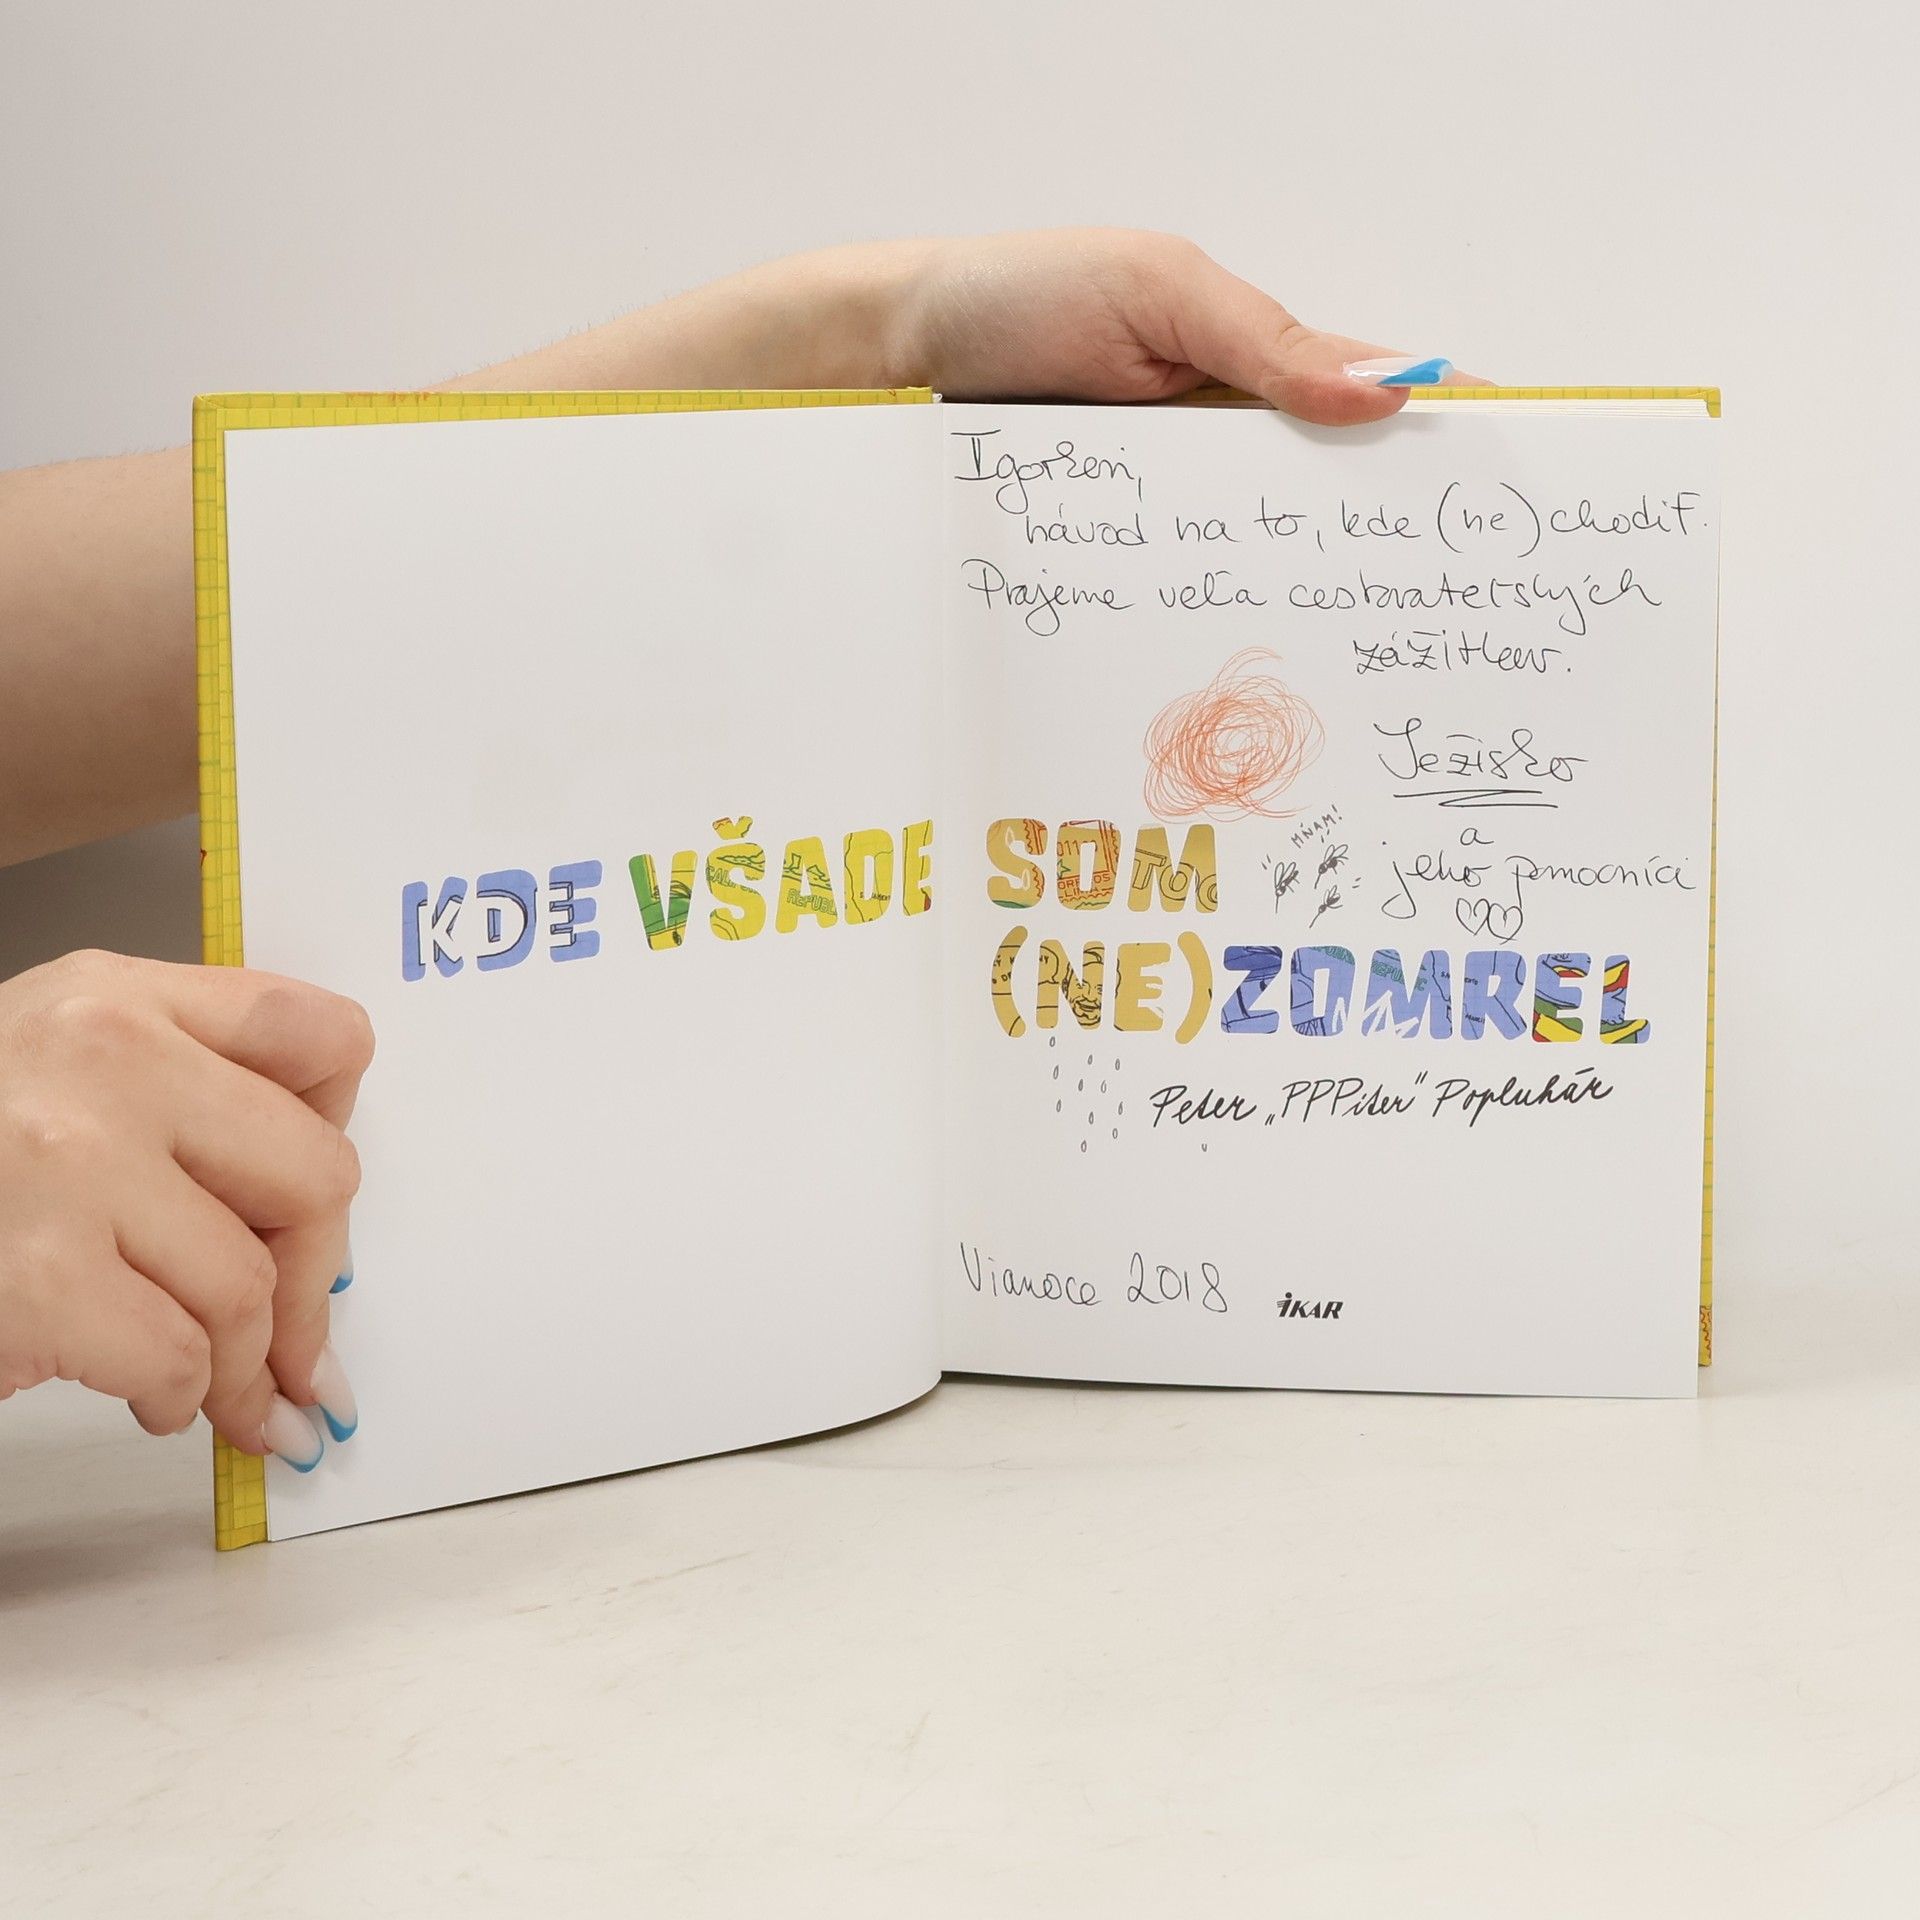 Igorkovi,
návod na to, kde (ne)chodiť.
Prajeme veľa cestovateľských
zážitkov.
Ježiško
a
jeho pomocníci
MŇAM!
KDE VŠADE SOM
(NE)ZOMREL
Peter „PPPíter" Popluhár
Vianoce 2018
iKAR